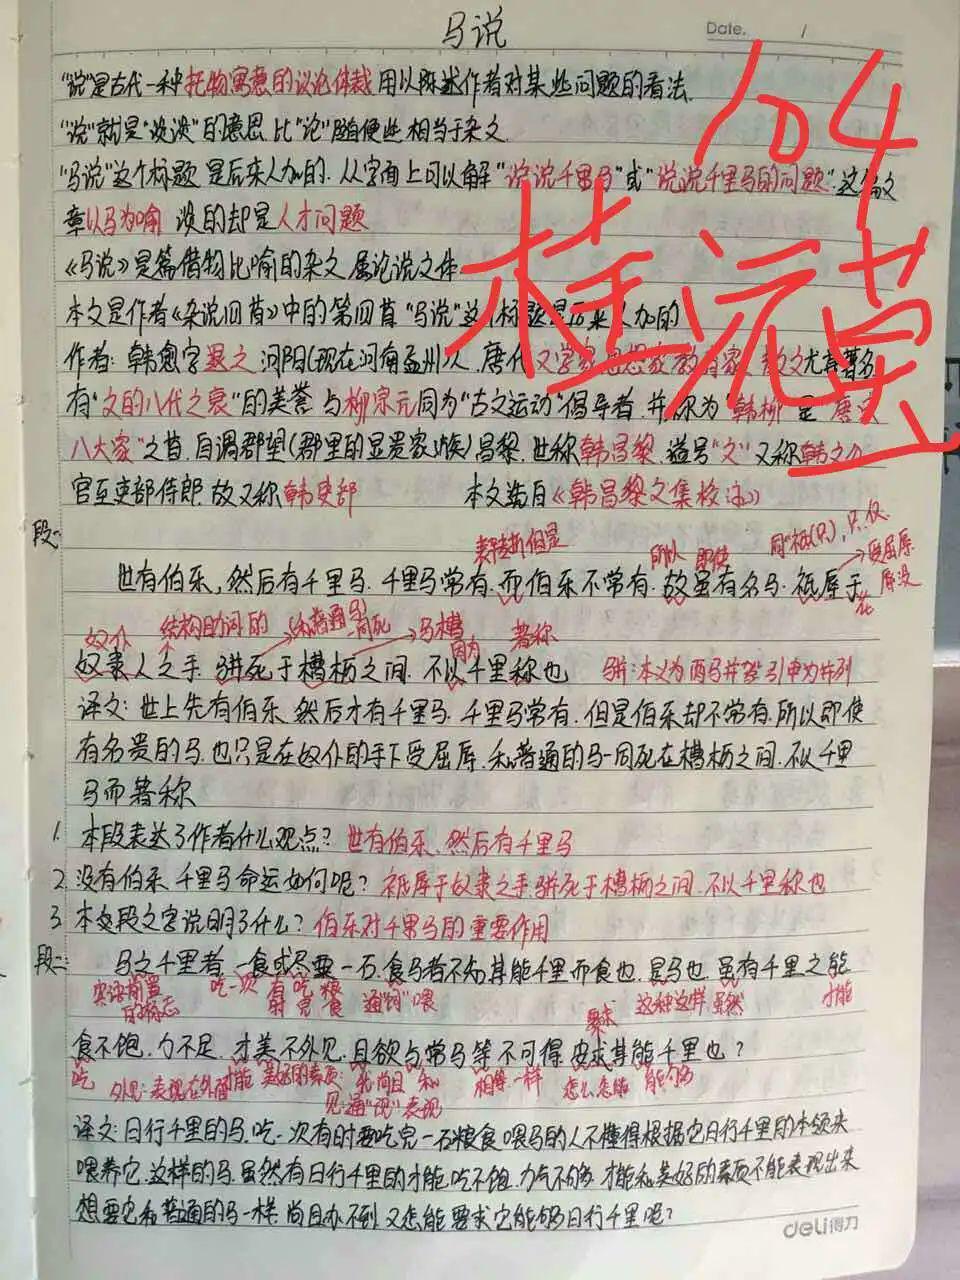 马说
Date. /
104
桂流莫
"说"是古代一种托物寓意的议论体裁 用以陈述作者对某些问题的看法
"说"就是"谈谈"的意思 比"论"随便些 相当于杂文
"马说"这个标题 是后来人加的. 从字面上可以解"说说千里马"或"说说千里马的问题" 这篇文
章以马为喻 谈的却是人才问题
《马说》是篇借物比喻的杂文 属论说文体
本文是作者《杂说四首》中的第四首 "马说"这个标题是后来人加的
作者: 韩愈字退之 河阳(现在河南孟州)人. 唐代文学家思想家教育家 散文尤其著名
有"文的八代之衰"的美誉 与柳宗元同为"古文运动"倡导者 并称为"韩柳" 是"唐宋
八大家"之首. 自谓郡望(郡里的显贵家族)昌黎. 世称韩昌黎. 谥号"文" 又称韩文公
官至吏部侍郎. 故又称韩吏部 本文选自《韩昌黎文集校注》
段一:
表转折但是 所以 即使 同"衹(只)", 只, 仅
受屈辱
世有伯乐, 然后有千里马. 千里马常有. 而伯乐不常有. 故虽有名马. 祗辱于
在
奴仆 结构助词的 (和普通马)一同死 马槽 因为 著称
奴隶人之手. 骈死于槽枥之间. 不以千里称也 骈: 本义为两马并驾 引申为并列
译文: 世上先有伯乐 然后才有千里马. 千里马常有. 但是伯乐却不常有. 所以即使
有名贵的马. 也只是在奴仆的手下受屈辱. 和普通的马一同死在槽枥之间. 不以千里
马而著称
1. 本段表达了作者什么观点? 世有伯乐. 然后有千里马
2. 没有伯乐 千里马命运如何呢? 祗辱于奴隶之手. 骈死于槽枥之间. 不以千里称也
3. 本文段文字说明了什么? 伯乐对千里马的重要作用
段二: 马之千里者 一食或尽粟一石. 食马者不知其能千里而食也. 是马也 虽有千里之能
吃一次 有时 吃完 粮食 通"饲" 喂 要求 这种 这样. 虽然 才能
食不饱. 力不足. 才美不外见. 且欲与常马等不可得 安求其能千里也?
吃 外见: 表现在外面 才能 美好的素质: 尚且 和 相等. 一样 怎么 怎能 能够
见 通"现" 表现
译文: 日行千里的马. 吃一次有时要吃完一石粮食 喂马的人不懂得根据它日行千里的本领来
喂养它. 这样的马. 虽然有日行千里的才能. 吃不饱. 力气不够. 才能和美好的素质不能表现出来
想要它和普通的马一样. 尚且办不到. 又怎能要求它能够日行千里呢?
deli得力